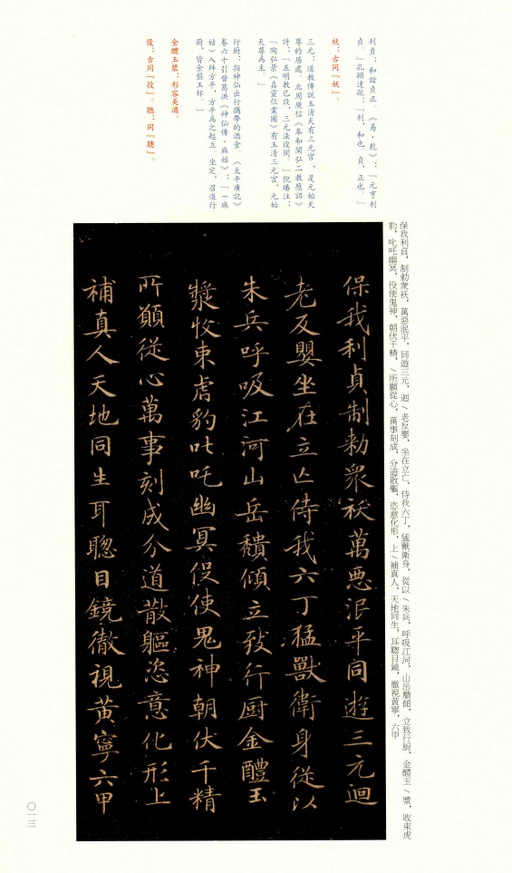 保我利貞，制勅衆袄，萬惡泯平，同遊三元，迴╲老反嬰，坐在立亡，侍我六丁，猛獸衛身，從以╲朱兵，呼吸江河，山岳穨傾，立致行厨，金醴玉╲漿，收束虎
豹，叱吒幽冥，役使鬼神，朝伏千精，╲所願從心，萬事刻成，分道散軀，恣意化形，上╲補真人，天地同生，耳聰目鏡，徹視黃寧，六甲
利貞：和諧貞正。《易·乾》：「元亨利
貞。」孔穎達疏：「利，和也。貞，正也。」
袄：古同「妖」。
三元：道教傳說玉清天有三元宮，是元始天
尊的居處。北周庾信《奉和闡弘二教應詔》
詩：「五明教已設，三元法復開。」倪璠注：
「陶弘景《真靈位業圖》有玉清三元宮，元始
天尊爲主。」
行厨：指神仙出行攜帶的酒食。《太平廣記》
卷六十引晉葛洪《神仙傳·麻姑》：「（麻
姑）入拜方平，方平爲之起立。坐定，召進行
厨，皆金盤玉杯。」
金醴玉漿：形容美酒。
伇：古同「役」。聦：同「聰」。
保我利貞制勅衆袄萬惡泯平同遊三元迴
老反嬰坐在立亾侍我六丁猛獸衛身從以
朱兵呼吸江河山岳穨傾立致行厨金醴玉
漿收束虎豹叱吒幽冥伇使鬼神朝伏千精
所願從心萬事刻成分道散軀恣意化形上
補真人天地同生耳聦目鏡徹視黃寧六甲
〇一三